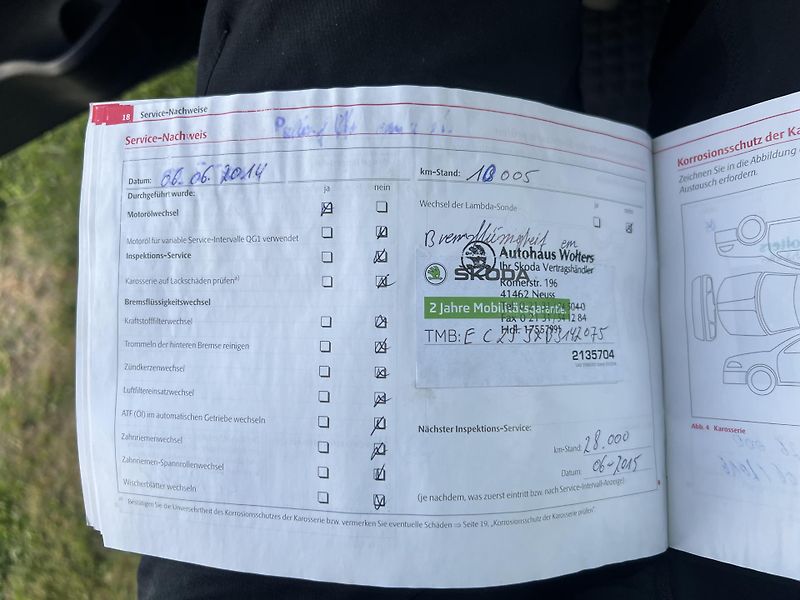 18 Service-Nachweise
Service-Nachweis
Datum: 06.06.2014
km-Stand: 18005
Durchgeführt wurde: ja nein
Motorölwechsel
Motoröl für variable Service-Intervalle QG1 verwendet
Inspektions-Service
Karosserie auf Lackschäden prüfen
Bremsflüssigkeitswechsel
Kraftstofffilterwechsel
Trommeln der hinteren Bremse reinigen
Zündkerzenwechsel
Luftfiltereinsatzwechsel
ATF (Öl) im automatischen Getriebe wechseln
Zahnriemenwechsel
Zahnriemen-Spannrollenwechsel
Wischerblätter wechseln
Wechsel der Lambda-Sonde
Bremsflüssigkeit
Autohaus Wolters
Ihr Skoda Vertragshändler
SKODA
Römerstr. 196
41462 Neuss
2 Jahre Mobilitätsgarantie.
TMB:
2135704
Nächster Inspektions-Service:
km-Stand: 28.000
Datum: 06-2015
(je nachdem, was zuerst eintritt bzw. nach Service-Intervall-Anzeige)
Bestätigen Sie die Unversehrtheit des Korrosionsschutzes der Karosserie bzw. vermerken Sie eventuelle Schäden ⇒ Seite 19, "Korrosionsschutz der Karosserie prüfen".
Korrosionsschutz der Ka
Zeichnen Sie in die Abbildung
Austausch erfordern.
Abb. 4 Karosserie